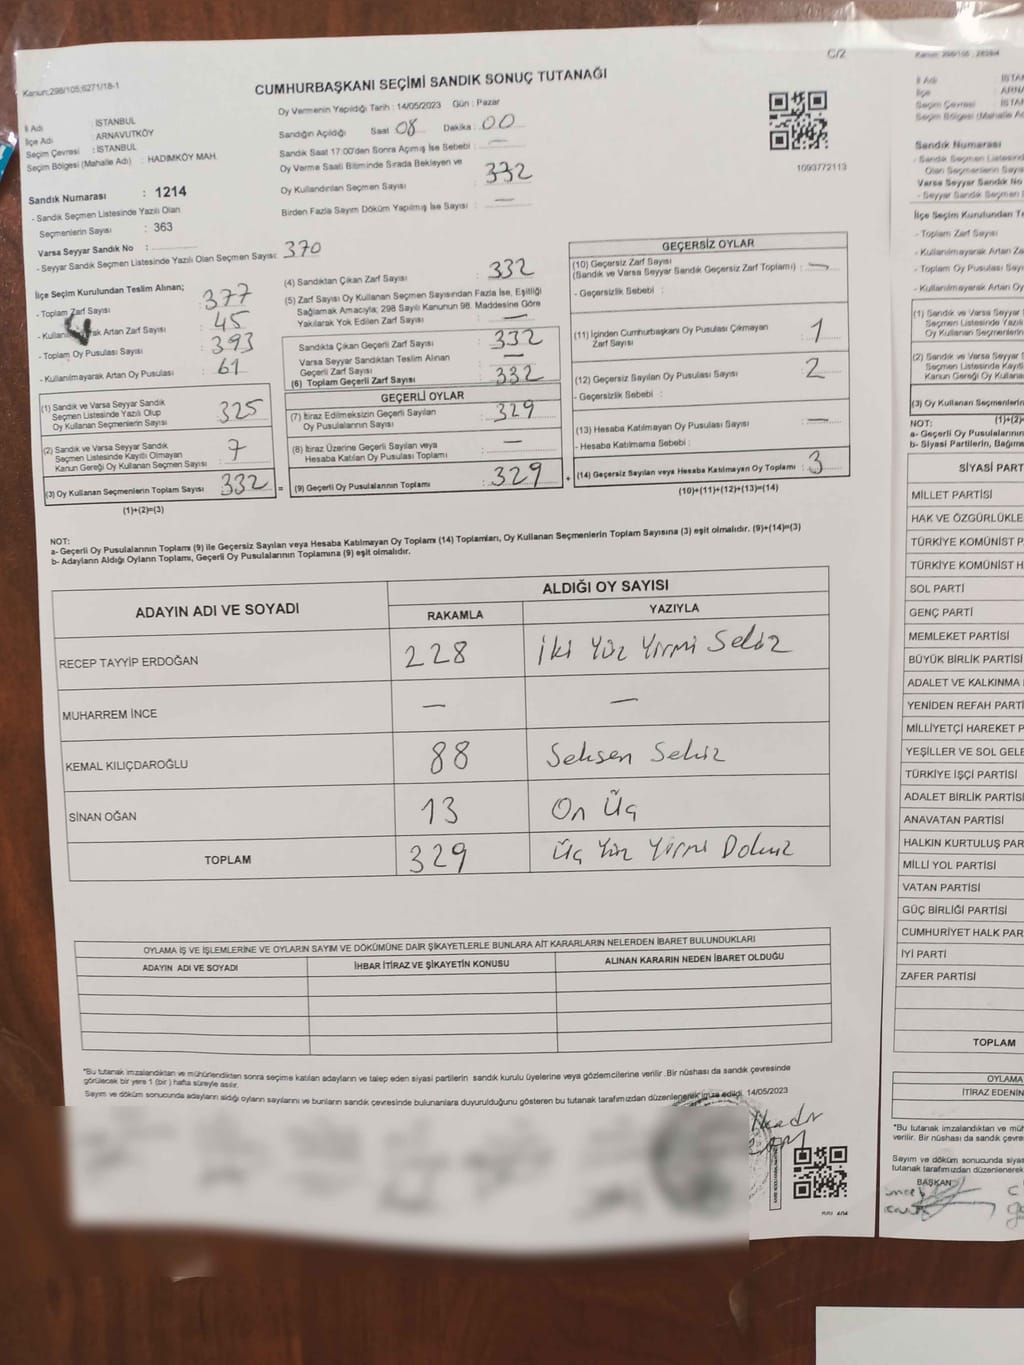 C/2
Kanun;298/105;6271/18-1
CUMHURBAŞKANI SEÇİMİ SANDIK SONUÇ TUTANAĞI
İl Adı : İSTANBUL
İlçe Adı : ARNAVUTKÖY
Seçim Çevresi : İSTANBUL
Seçim Bölgesi (Mahalle Adı) : HADIMKÖY MAH.
Sandık Numarası : 1214
- Sandık Seçmen Listesinde Yazılı Olan
Seçmenlerin Sayısı : 363
Varsa Seyyar Sandık No :
- Seyyar Sandık Seçmen Listesinde Yazılı Olan Seçmen Sayısı: 370
Oy Vermenin Yapıldığı Tarih : 14/05/2023 Gün : Pazar
Sandığın Açıldığı Saat 08 Dakika : 00
Sandık Saat 17:00'den Sonra Açımış İse Sebebi : —
Oy Verme Saati Bitiminde Sırada Bekleyen ve
Oy Kullandırılan Seçmen Sayısı : 332
Birden Fazla Sayım Döküm Yapılmış İse Sayısı : —
1093772113
İlçe Seçim Kurulundan Teslim Alınan;
- Toplam Zarf Sayısı : 377
- Kullanılmayarak Artan Zarf Sayısı : 45
- Toplam Oy Pusulası Sayısı : 393
- Kullanılmayarak Artan Oy Pusulası : 61
(1) Sandık ve Varsa Seyyar Sandık
Seçmen Listesinde Yazılı Olup
Oy Kullanan Seçmen Sayısı : 325
(2) Sandık ve Varsa Seyyar Sandık
Seçmen Listesinde Kayıtlı Olmayan
Kanun Gereği Oy Kullanan Seçmen Sayısı : 7
(3) Oy Kullanan Seçmenlerin Toplam Sayısı : 332 =
(1)+(2)=(3)
(4) Sandıktan Çıkan Zarf Sayısı : 332
(5) Zarf Sayısı Oy Kullanan Seçmen Sayısından Fazla İse, Eşitliği
Sağlamak Amacıyla; 298 Sayılı Kanunun 98. Maddesine Göre
Yakılarak Yok Edilen Zarf Sayısı : —
Sandıkta Çıkan Geçerli Zarf Sayısı : 332
Varsa Seyyar Sandıktan Teslim Alınan
Geçerli Zarf Sayısı : —
(6) Toplam Geçerli Zarf Sayısı : 332
GEÇERLİ OYLAR
(7) İtiraz Edilmeksizin Geçerli Sayılan
Oy Pusulalarının Sayısı : 329
(8) İtiraz Üzerine Geçerli Sayılan veya
Hesaba Katılan Oy Pusulası Toplamı : —
(9) Geçerli Oy Pusulalarının Toplamı : 329 +
GEÇERSİZ OYLAR
(10) Geçersiz Zarf Sayısı
(Sandık ve Varsa Seyyar Sandık Geçersiz Zarf Toplamı) : —
- Geçersizlik Sebebi :
(11) İçinden Cumhurbaşkanı Oy Pusulası Çıkmayan
Zarf Sayısı : 1
(12) Geçersiz Sayılan Oy Pusulası Sayısı : 2
- Geçersizlik Sebebi :
(13) Hesaba Katılmayan Oy Pusulası Sayısı : —
- Hesaba Katılmama Sebebi :
(14) Geçersiz Sayılan veya Hesaba Katılmayan Oy Toplamı : 3
(10)+(11)+(12)+(13)=(14)
NOT:
a- Geçerli Oy Pusulalarının Toplamı (9) ile Geçersiz Sayılan veya Hesaba Katılmayan Oy Toplamı (14) Toplamları, Oy Kullanan Seçmenlerin Toplam Sayısına (3) eşit olmalıdır. (9)+(14)=(3)
b- Adayların Aldığı Oyların Toplamı, Geçerli Oy Pusulalarının Toplamına (9) eşit olmalıdır.
ADAYIN ADI VE SOYADI
ALDIĞI OY SAYISI
RAKAMLA YAZIYLA
RECEP TAYYİP ERDOĞAN 228 İki Yüz Yirmi Sekiz
MUHARREM İNCE — —
KEMAL KILIÇDAROĞLU 88 Seksen Sekiz
SİNAN OĞAN 13 On Üç
TOPLAM 329 Üç Yüz Yirmi Dokuz
OYLAMA İŞ VE İŞLEMLERİNE VE OYLARIN SAYIM VE DÖKÜMÜNE DAİR ŞİKAYETLERLE BUNLARA AİT KARARLARIN NELERDEN İBARET BULUNDUKLARI
ADAYIN ADI VE SOYADI İHBAR İTİRAZ VE ŞİKAYETİN KONUSU ALINAN KARARIN NEDEN İBARET OLDUĞU
"Bu tutanak imzalandıktan ve mühürlendikten sonra seçime katılan adayların ve talep eden siyasi partilerin sandık kurulu üyelerine veya gözlemcilerine verilir .Bir nüshası da sandık çevresinde
görülecek bir yere 1 (bir ) hafta süreyle asılır.
Sayım ve döküm sonucunda adayların aldığı oyların sayılarını ve bunların sandık çevresinde bulunanlara duyurulduğunu gösteren bu tutanak tarafımızdan düzenlenerek imza edildi. 14/05/2023
İl Adı İSTAN
İlçe ARNA
Seçim Çevresi İSTA
Seçim Bölgesi (Mahalle A
Sandık Numarası
- Sandık Seçmen Listesind
Olan Seçmenlerin Sayıs
Varsa Seyyar Sandık No
- Seyyar Sandık Seçmen
İlçe Seçim Kurulundan T
- Toplam Zarf Sayısı
- Kullanılmayarak Artan Za
- Toplam Oy Pusulası Sayıs
- Kullanılmayarak Artan O
(1) Sandık ve Varsa Seyyar
Seçmen Listesinde Yazılı
Oy Kullanan Seçmen
(2) Sandık ve Varsa Seyyar
Seçmen Listesinde Kayıt
Kanun Gereği Oy Kullan
(3) Oy Kullanan Seçmenlerin
(1)+(2)=
NOT:
a- Geçerli Oy Pusulalarının
b- Siyasi Partilerin, Bağıms
SİYASİ PART
MİLLET PARTİSİ
HAK VE ÖZGÜRLÜKLE
TÜRKİYE KOMÜNİST P
TÜRKİYE KOMÜNİST H
SOL PARTİ
GENÇ PARTİ
MEMLEKET PARTİSİ
BÜYÜK BİRLİK PARTİSİ
ADALET VE KALKINMA
YENİDEN REFAH PARTİ
MİLLİYETÇİ HAREKET P
YEŞİLLER VE SOL GELE
TÜRKİYE İŞÇİ PARTİSİ
ADALET BİRLİK PARTİSİ
ANAVATAN PARTİSİ
HALKIN KURTULUŞ PAR
MİLLİ YOL PARTİSİ
VATAN PARTİSİ
GÜÇ BİRLİĞİ PARTİSİ
CUMHURİYET HALK PAR
İYİ PARTİ
ZAFER PARTİSİ
TOPLAM
OYLAMA
İTİRAZ EDENİN
"Bu tutanak imzalandıktan ve müh
verilir. Bir nüshası da sandık çevre
Sayım ve döküm sonucunda siyas
tutanak tarafımızdan düzenlenerek
BAŞKAN